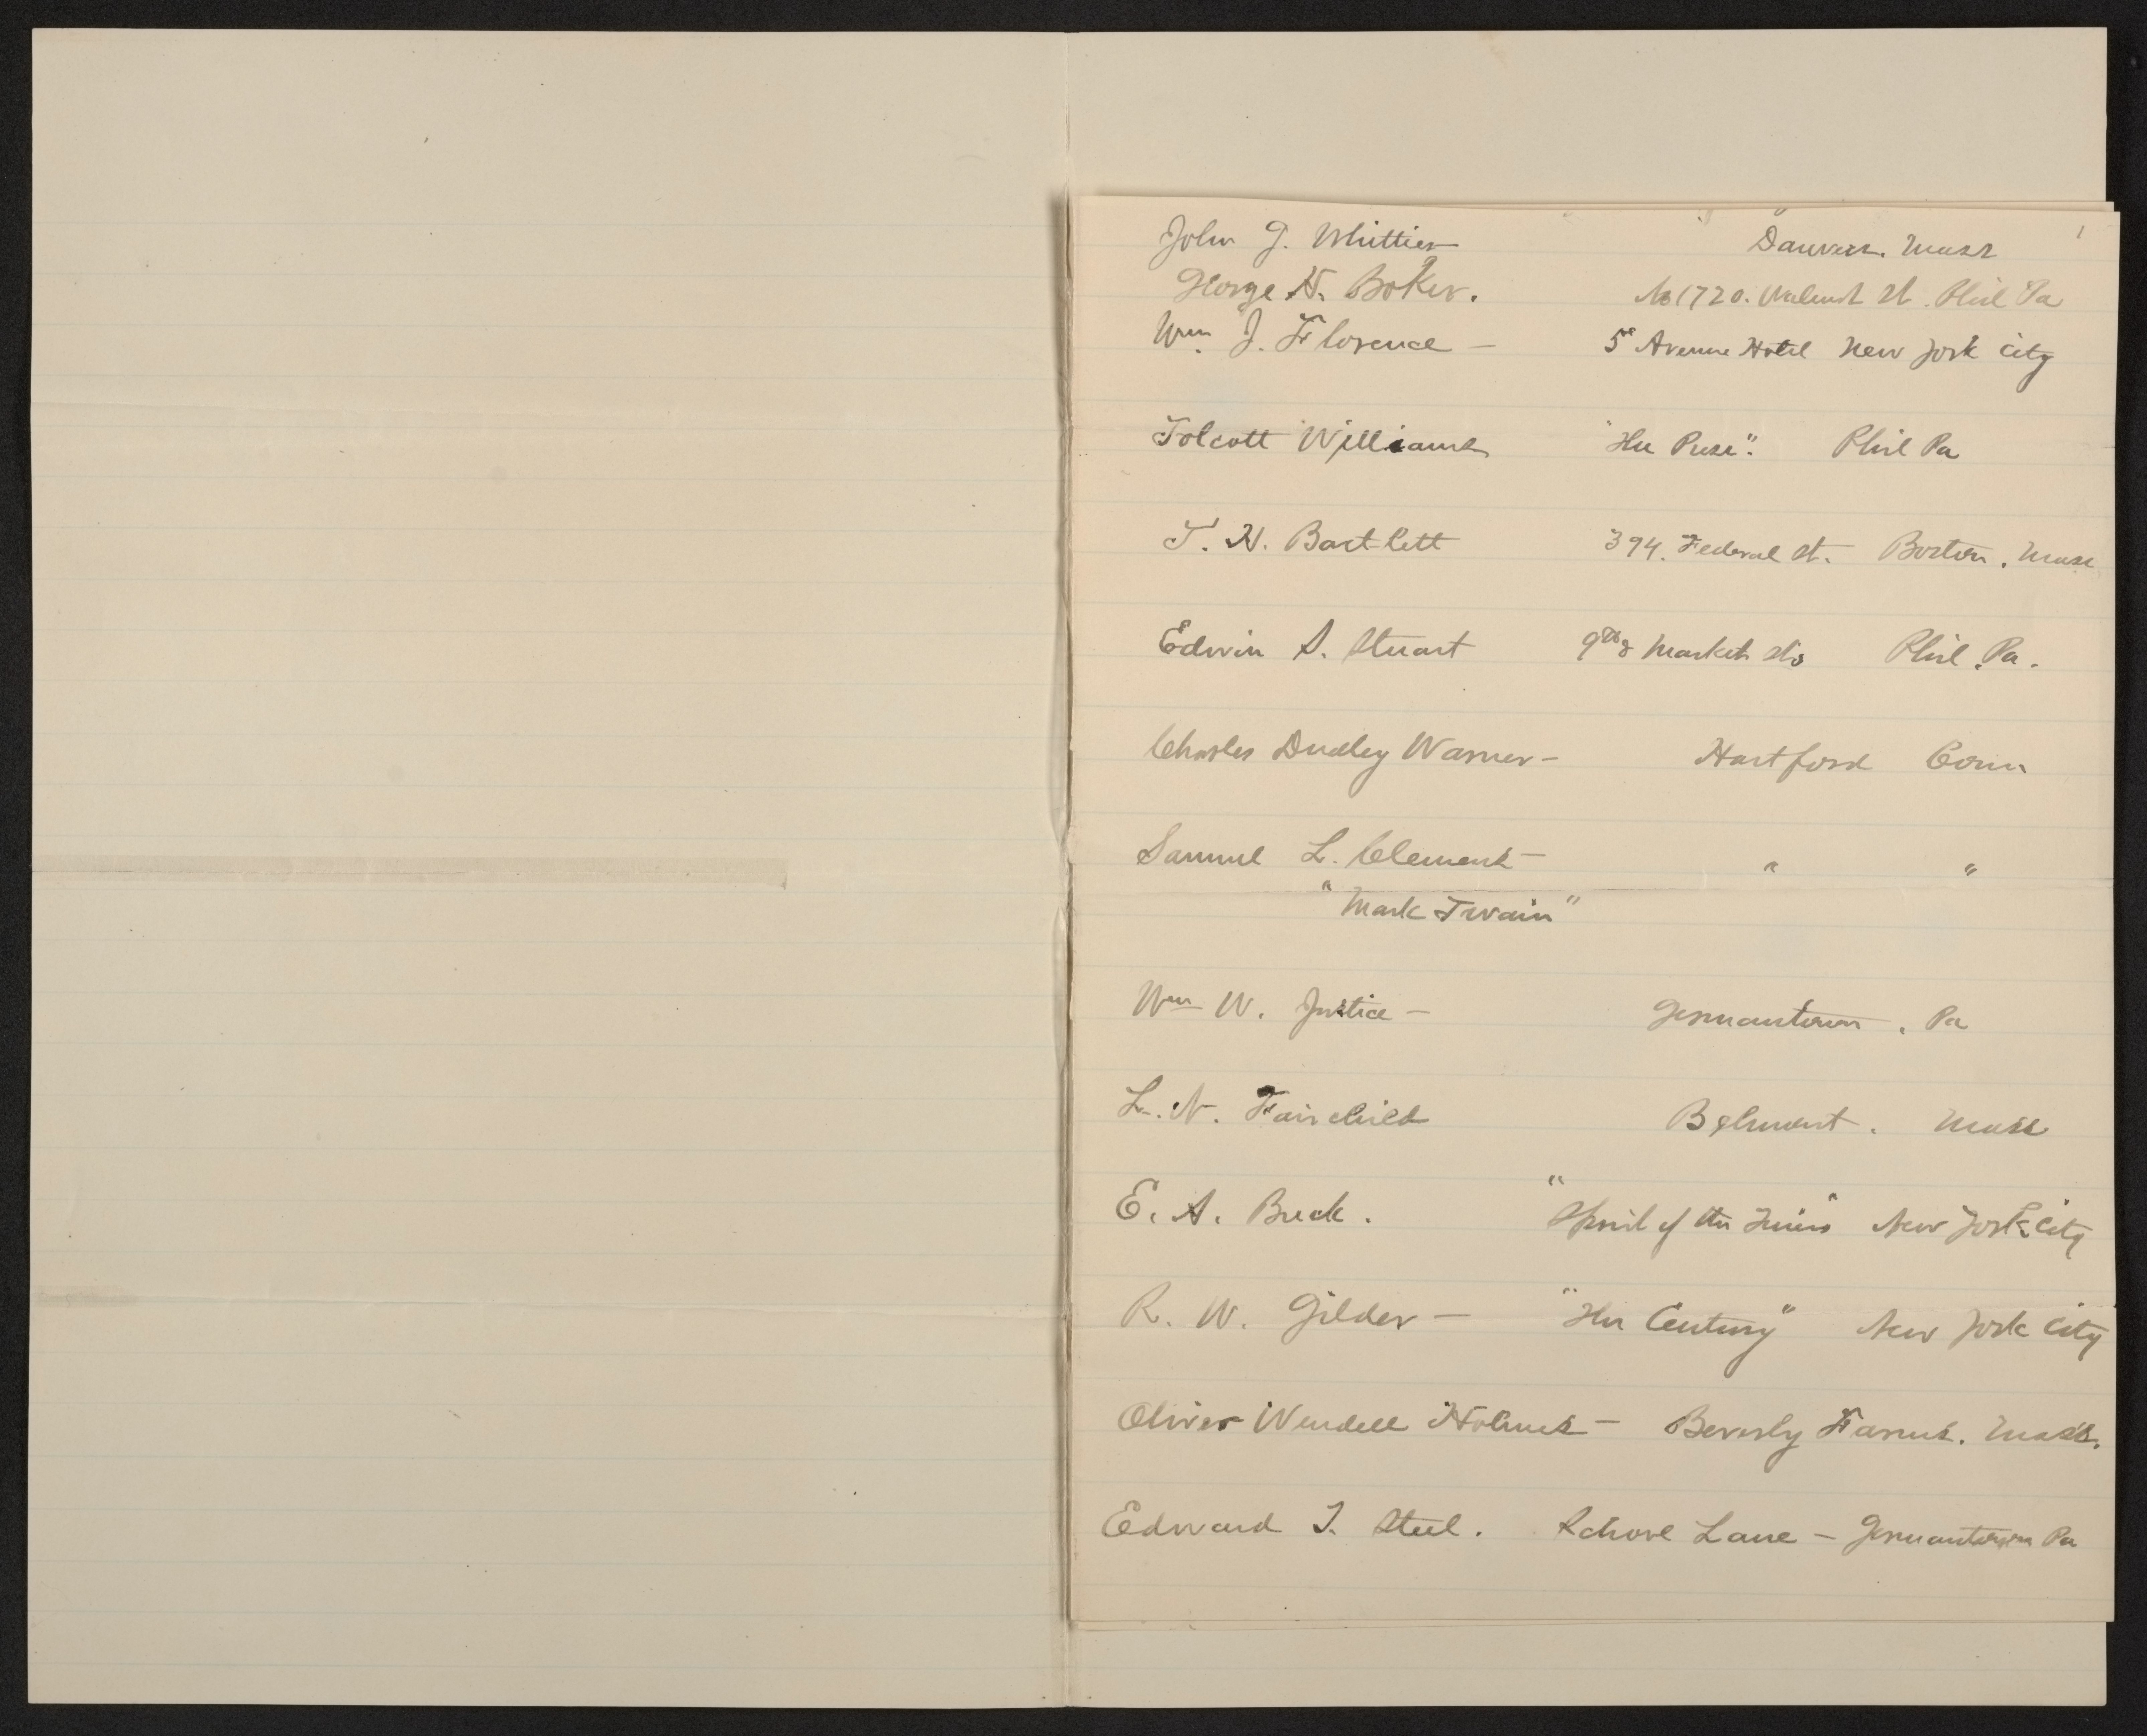 1
John G. Whittier Danvers. Mass
George H. Boker. No 1720. Walnut St. Phil Pa
Wm. J. Florence — 5th Avenue Hotel New York City
Tolcott Williams "The Press". Phil Pa
T. H. Bartlett 394. Federal St. Boston. Mass
Edwin S. Stuart 9th & Market Sts Phil. Pa.
Charles Dudley Warner — Hartford Conn
Samuel L. Clemens — " "
"Mark Twain"
Wm W. Justice — Germantown. Pa
L. N. Fairchild Belmont. Mass
E. A. Buck. "Spirit of the Times" New York City
R. W. Gilder — "The Century" New York City
Oliver Wendell Holmes — Beverly Farms. Mass.
Edward T. Steel. School Lane — Germantown Pa